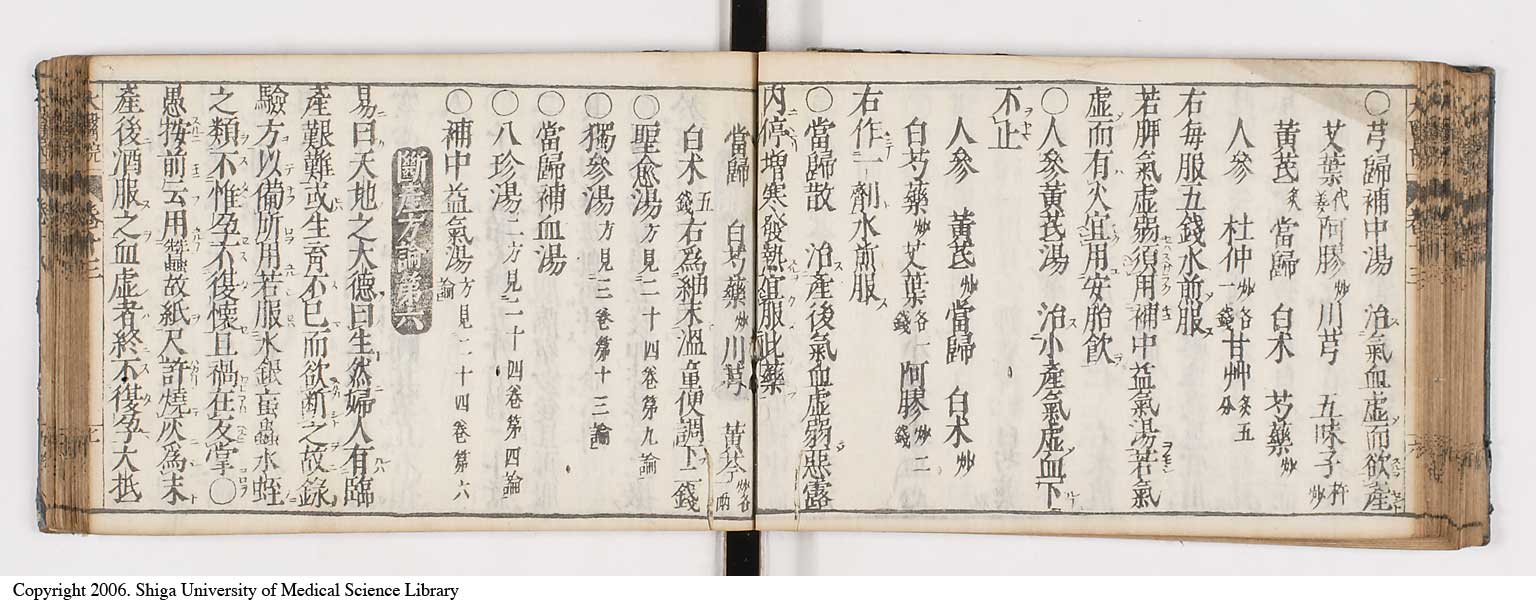 〇芎歸補中湯　治氣血虛而欲產
艾葉代姜　阿膠炒　川芎　五味子杵炒
黃芪炙　當歸　白朮　芍藥炒
人參　杜仲炒各一錢　甘艸炙五分
右每服五錢水煎服
若脾氣虛弱須用補中益氣湯若氣
虛而有火宜用安胎飮
〇人參黃芪湯　治小產氣虛血下
不止
人參　黃芪　當歸　白朮炒
白芍藥炒　艾葉各一錢　阿膠炒二錢
右作一劑水煎服
〇當歸散　治產後氣血虛弱惡露
內停增寒發熱宜服此藥
當歸　白芍藥炒　川芎　黃芩炒各一兩
白朮五錢　右爲細末溫童便調下二錢
〇聖愈湯方見二十四卷第九論
〇獨參湯方見三卷第十三論
〇當歸補血湯
〇八珍湯二方見二十四卷第四論
〇補中益氣湯方見二十四卷第六論
斷產方論第六
易曰天地之大德曰生然婦人有臨
產艱難或生育不已而欲斷之故錄
驗方以備所用若服水銀䖟蟲水蛭
之類不惟孕不復懷且禍在反掌〇
愚按前云用蠶故紙尺許燒灰爲末
產後酒服之血虛者終不復孕大抵
Copyright 2006. Shiga University of Medical Science Library